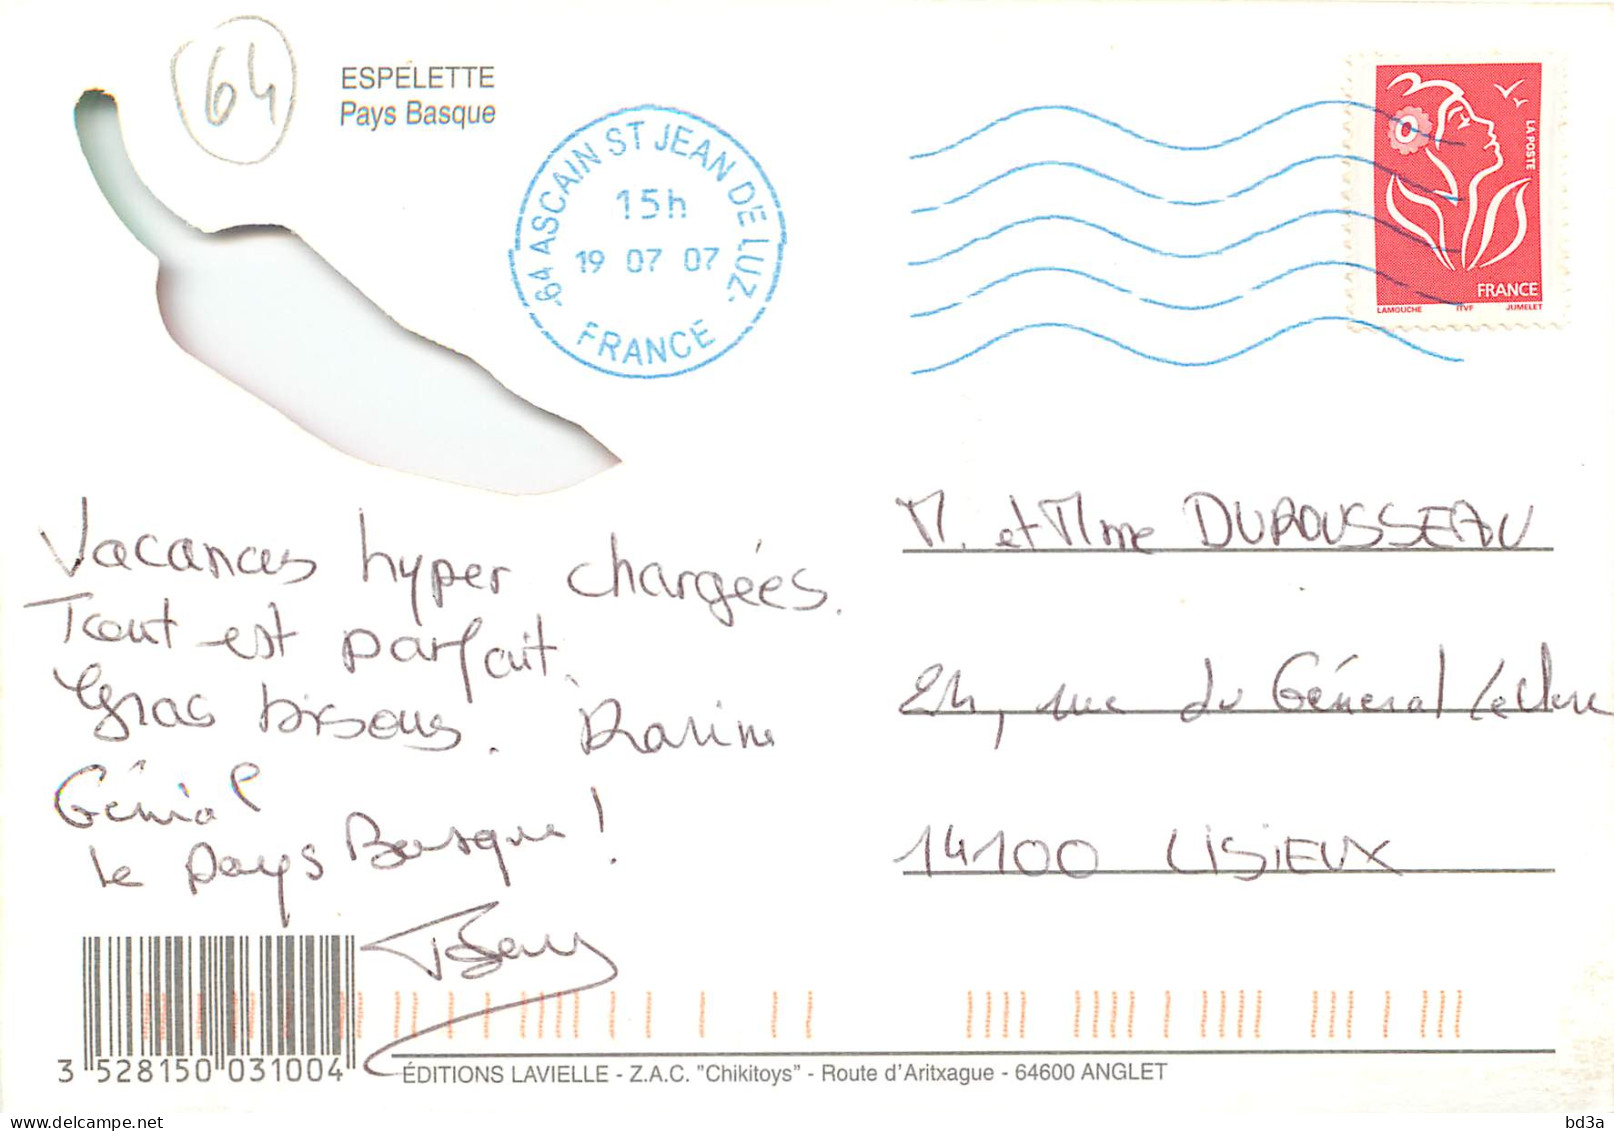 64
ESPELETTE
Pays Basque
64 ASCAIN ST JEAN DE LUZ
15h
19 07 07
FRANCE
LA POSTE
FRANCE
LAMOUCHE ITVF JUMELET
Vacances hyper chargées.
Tout est parfait.
Gros bisous. Karine
Génial
le pays Basque !
M. et Mme DUROUSSEAU
24, rue du Général Leclerc
14100 LISIEUX
3 528150 031004
ÉDITIONS LAVIELLE - Z.A.C. "Chikitoys" - Route d'Aritxague - 64600 ANGLET
delcampe.net
bd3a